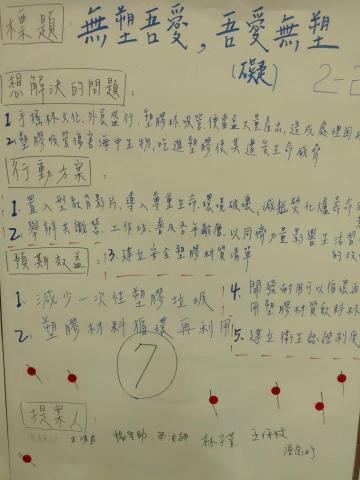 標題: 無塑吾愛,吾愛無塑
(礙) 2-2
想解決的問題:
1. 手搖杯文化、外食盛行,塑膠杯、吸管、便當盒大量產出,造成處理困
2. 塑膠吸管傷害海中生物,吃進塑膠使其遭受生命威脅
行動方案:
1. 置入型教育影片,導入尊重生命、環境破壞、減輕焚化爐壽命
2. 舉辦共識營、工作坊,普及各年齡層,以同儕力量影響生活習
3. 建立安全塑膠材質清單
預期效益:
1. 減少一次性塑膠垃圾
2. 塑膠材料循環再利用
4. 開發耐用可以循環
用塑膠材質飲料杯
5. 建立衛生認證制度
7
提案人:
林宇萱